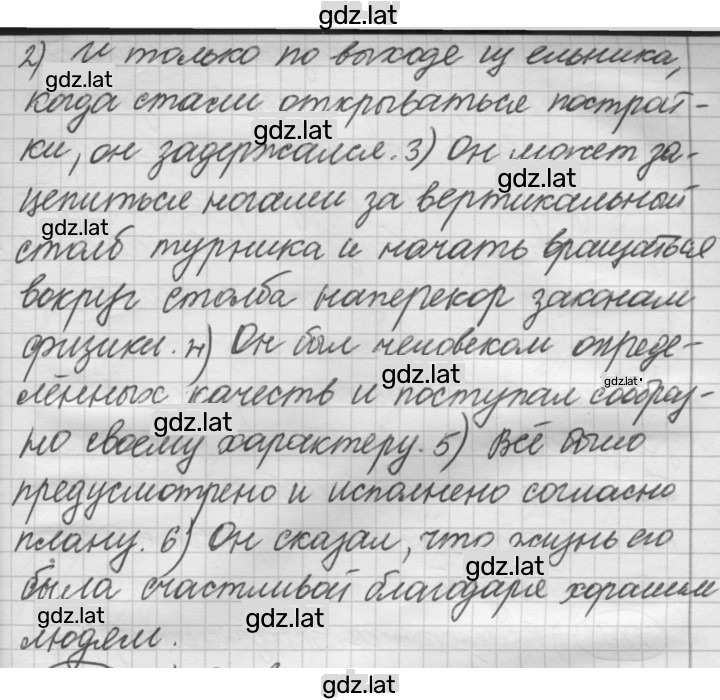 gdz.lat
2) И только по выходе из ельника,
gdz.lat
когда стали открываться построй-
gdz.lat
ки, он задержался. 3) Он может за-
gdz.lat
цепиться ногами за вертикальный
gdz.lat
столб турника и начать вращаться
вокруг столба наперекор законам
физики. 4) Он был человеком опреде-
gdz.lat
лённых качеств и поступал сообраз-
gdz.lat
gdz.lat
но своему характеру. 5) Всё было
предусмотрено и исполнено согласно
плану. 6) Он сказал, что жизнь его
gdz.lat
была счастливой благодаря хорошим
gdz.lat
gdz.lat
людям.
gdz.lat